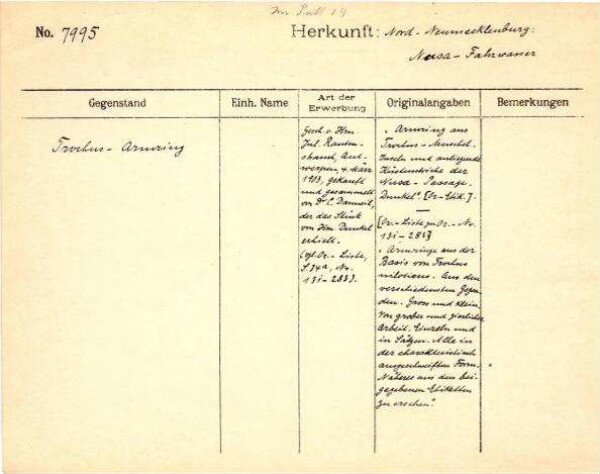 Im Pult 14
No. 7995
Herkunft: Nord-Neumecklenburg:
Nusa-Fahrwasser
Gegenstand
Einh. Name
Art der Erwerbung
Originalangaben
Bemerkungen
Trochus-Armring
Gesch. v. Hrn
Jul. Rauten-
strauch, Ant-
werpen, 4 März
1913, gekauft
und gesammelt
von Dr. C. Danneil,
der das Stück
von Hrn Dunkel
erhielt.
(vgl. Or.-Liste,
S. 34a, No.
131-283).
"Armring aus
Trochus-Muschel.
Inseln und anliegende
Küstenstriche der
Nusa-Passage.
Dunkel" [Or.-Etik.].
[Or.-Liste zu Or.-No.
131-283]
"Armringe aus der
Basis von Trochus
niloticus. Aus den
verschiedensten Gegen-
den. Gross und klein.
Von grober und zierlicher
Arbeit. Einzeln und
in Sätzen. Alle in
der charakteristisch
ausgeschweiften Form.
Näheres aus den bei-
gegebenen Etiketten
zu ersehen."